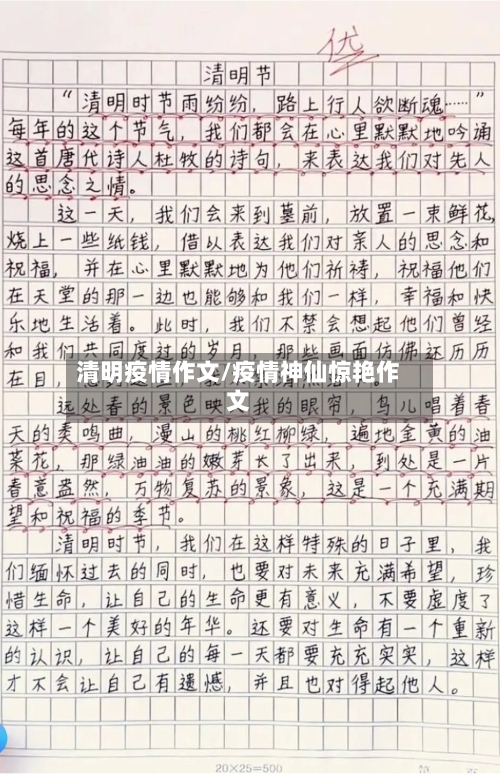 优
清明节
“清明时节雨纷纷，路上行人欲断魂……”
每年的这个节气，我们都会在心里默默地吟诵
这首唐代诗人杜牧的诗句，来表达我们对先人
的思念之情。
这一天，我们会来到墓前，放置一束鲜花，
烧上一些纸钱，借以表达我们对亲人的思念和
祝福，并在心里默默地为他们祈祷，祝福他们
在天堂的那一边也能够和我们一样，幸福和快
乐地生活着。此时，我们不禁会想起他们曾经
和我们共同度过的岁月，那些画面仿佛还历历
在目，
清明疫情作文/疫情神仙惊艳作
文
远处春的景色映入我的眼帘，鸟儿唱着春
天的奏鸣曲，漫山的桃红柳绿，遍地金黄的油
菜花，那绿油油的嫩芽长了出来，到处是一片
春意盎然，万物复苏的景象，这是一个充满期
望和祝福的季节。
清明时节，我们在这样特殊的日子里，我
们缅怀过去的同时，也要对未来充满希望，珍
惜生命，让自己的生命更有意义，不要虚度了
这样一个美好的年华。还要对生命有一个重新
的认识，让自己的每一天都要充充实实，这样
才不会让自己有遗憾，并且也对得起他人。
20×25=500